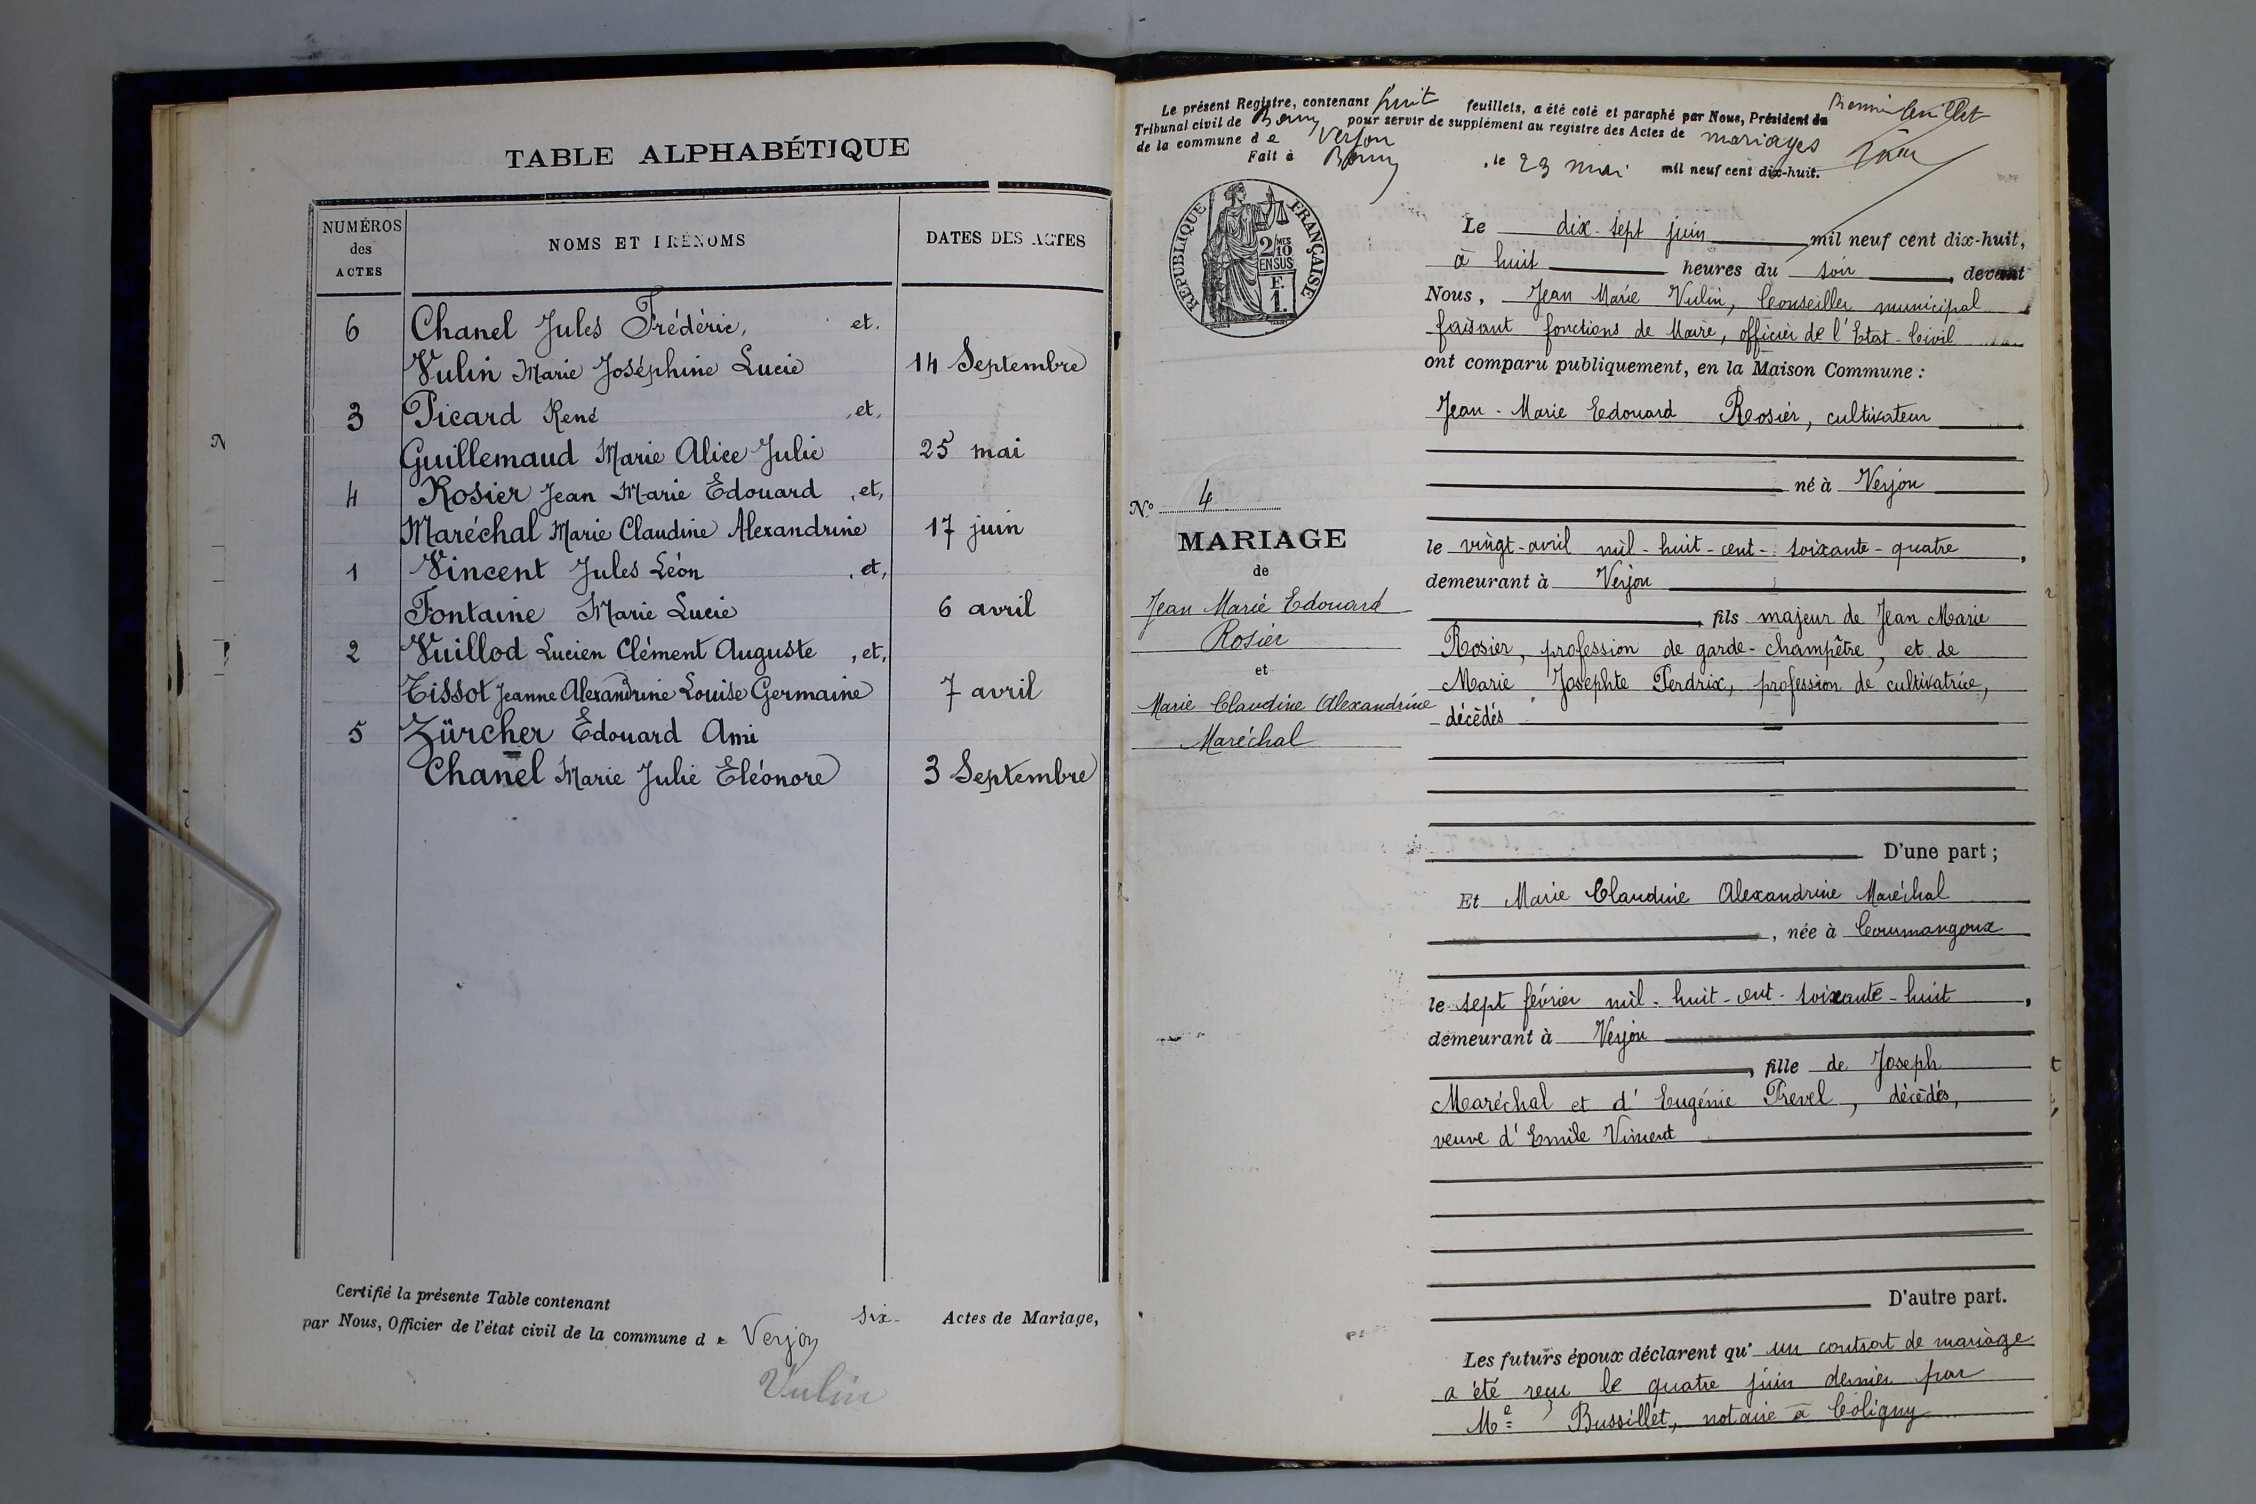 TABLE ALPHABÉTIQUE
NUMÉROS des ACTES
NOMS ET PRÉNOMS
DATES DES ACTES
6 Chanel Jules Frédéric, et.
Vulin Marie Joséphine Lucie 14 Septembre
3 Picard René , et,
Guillemaud Marie Alice Julie 25 mai
4 Rosier Jean Marie Edouard , et,
Maréchal Marie Claudine Alexandrine 17 juin
1 Vincent Jules Léon , et,
Fontaine Marie Lucie 6 avril
2 Vuillod Lucien Clément Auguste , et,
Tissot Jeanne Alexandrine Louise Germaine 7 avril
5 Zürcher Edouard Ami
Chanel Marie Julie Eléonore 3 Septembre
Certifié la présente Table contenant six Actes de Mariage,
par Nous, Officier de l'état civil de la commune de Verjon
Vulin
Le présent Registre, contenant huit feuillets, a été coté et paraphé par Nous, Président du
Tribunal civil de Bourg pour servir de supplément au registre des Actes de mariages
de la commune de Verjon
Fait à Bourg, le 23 mai mil neuf cent dix-huit.
Premier feuillet
RÉPUBLIQUE FRANÇAISE
2/10 MES
EN SUS
F.
1.
No 4
MARIAGE
de
Jean Marie Edouard
Rosier
et
Marie Claudine Alexandrine
Maréchal
Le dix-sept juin mil neuf cent dix-huit,
à huit heures du soir, devant
Nous, Jean Marie Vulin, Conseiller municipal
faisant fonctions de Maire, officier de l'Etat-Civil
ont comparu publiquement, en la Maison Commune :
Jean-Marie Edouard Rosier, cultivateur
né à Verjon
le vingt-avril mil-huit-cent-soixante-quatre,
demeurant à Verjon
, fils majeur de Jean Marie
Rosier, profession de garde-champêtre, et de
Marie Josephte Perdrix, profession de cultivatrice,
décèdés
D'une part ;
Et Marie Claudine Alexandrine Maréchal
, née à Courmangoux
le sept février mil-huit-cent-soixante-huit,
demeurant à Verjon
, fille de Joseph
Maréchal et d'Eugénie Prevel, décèdés,
veuve d'Emile Vincent
D'autre part.
Les futurs époux déclarent qu'un contrat de mariage
a été reçu le quatre juin dernier par
Me Bussillet, notaire à Coligny